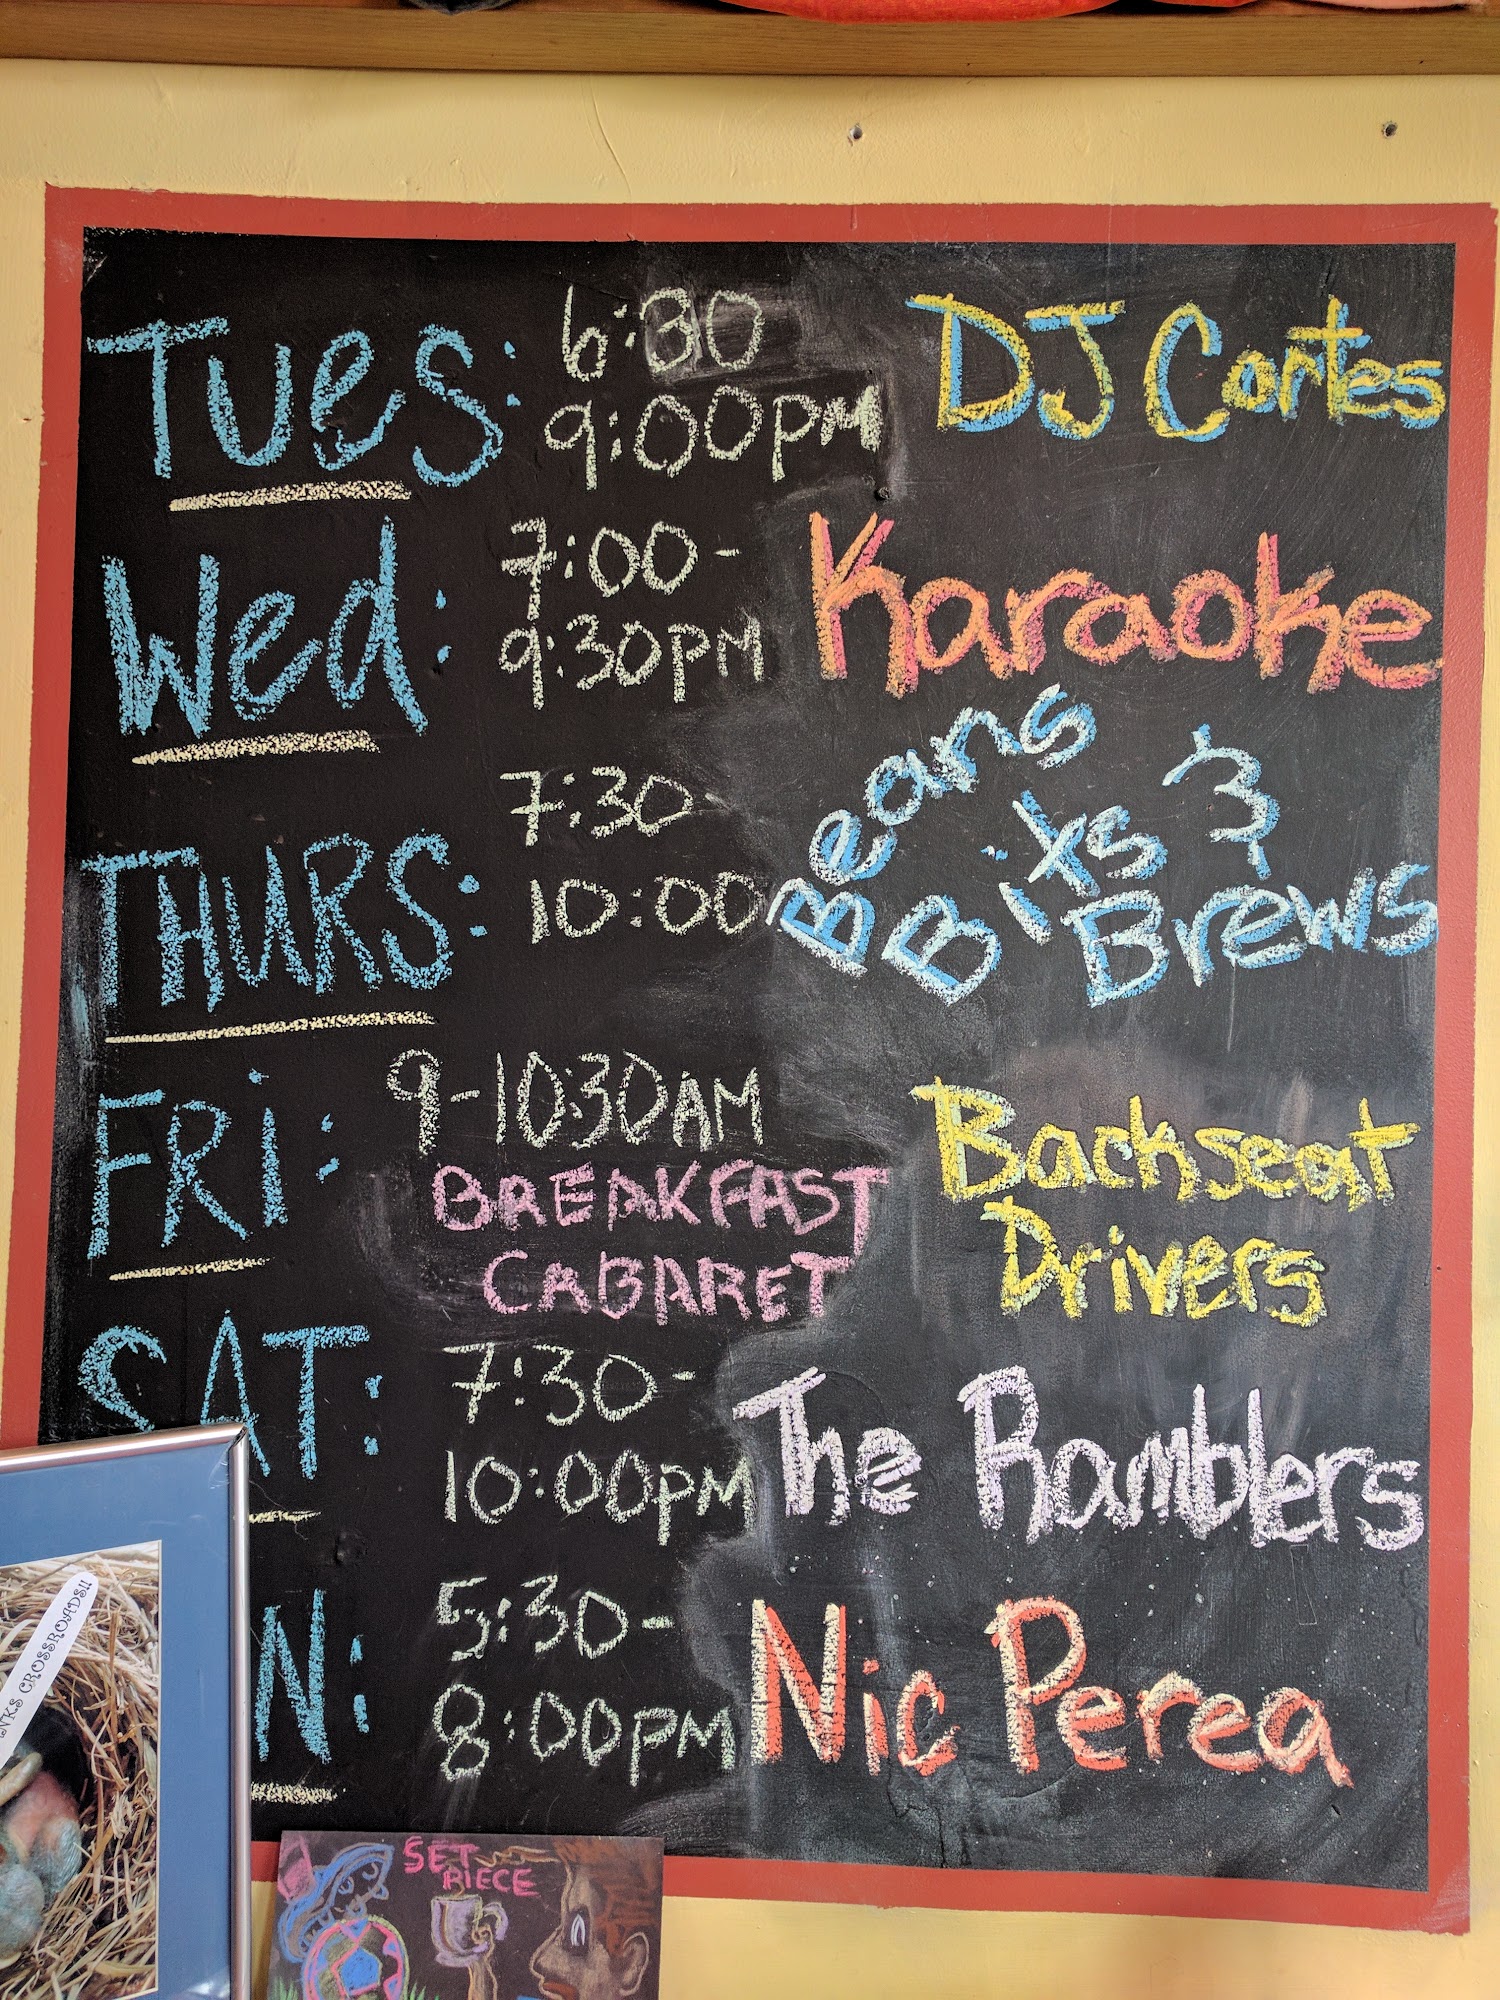 Tues: 6:30 DJ Cortes
9:00PM
Wed: 7:00- Karaoke
9:30PM
THURS: 7:30- Beans Bixs & Brews
10:00
FRi: 9-10:30AM Backseat
BREAKFAST Drivers
CABARET
SAT: 7:30- The Ramblers
10:00PM
N: 5:30- Nic Perea
8:00PM
NKS CROSSROADS!!
SET
PIECE